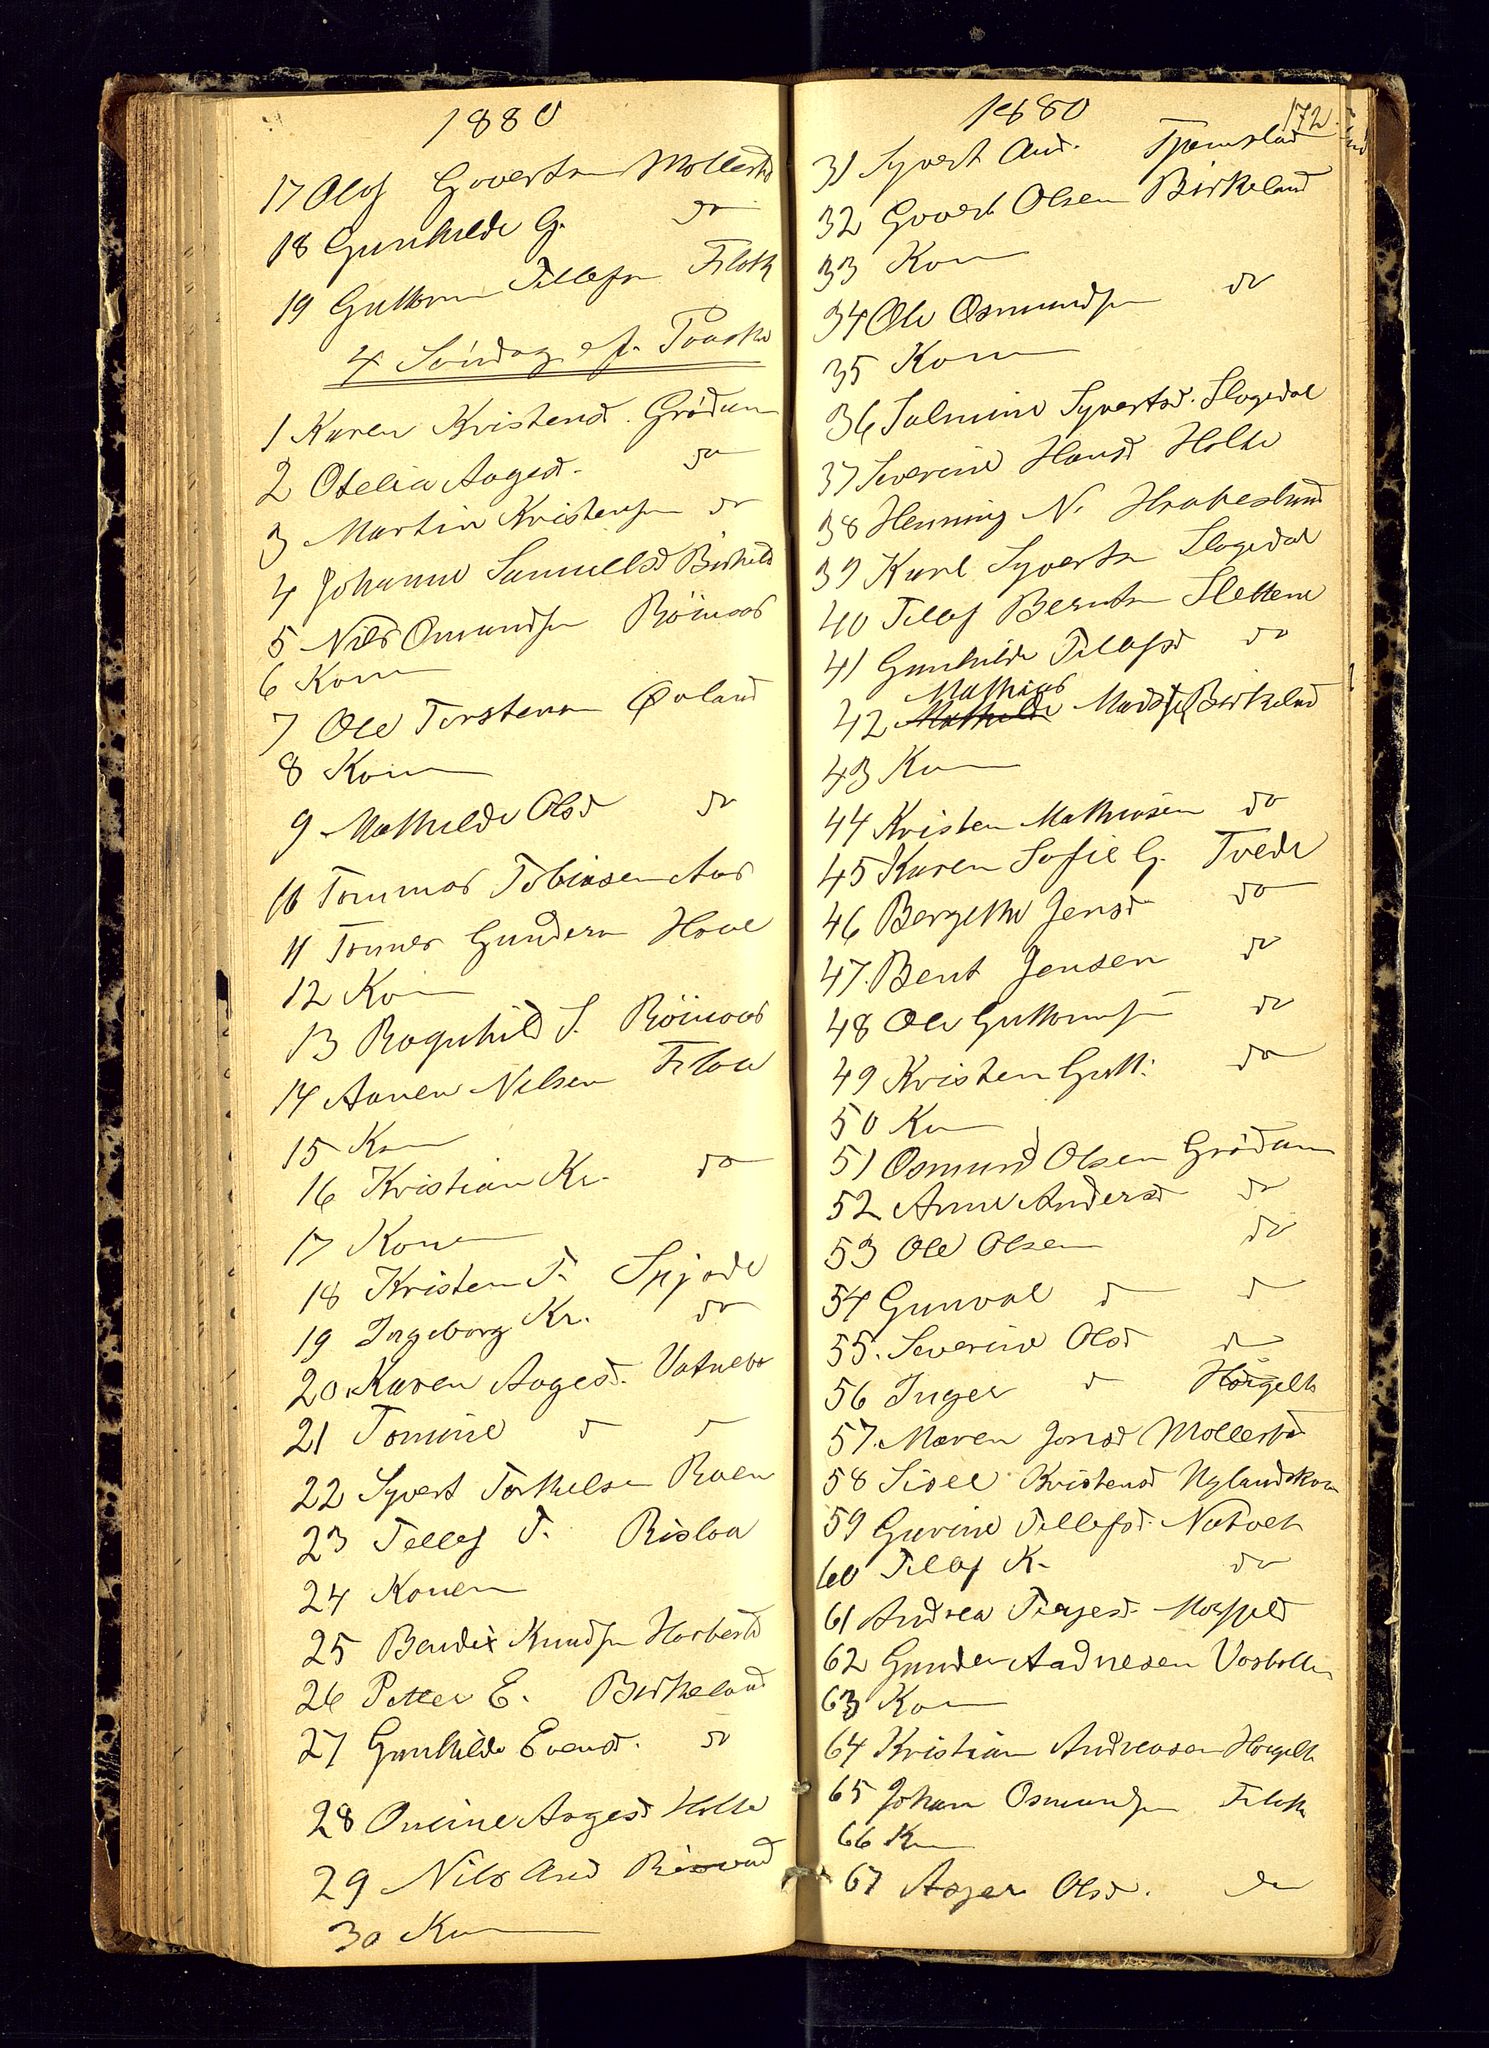 1880
17 Olaf Govertsn Mollestd
18 Gunhilde G. do
19 Guttorm Tellefsn Flotk
4 Søndag ef. Paaske
1 Karen Kristensd. Grødum
2 Otelia Aagesd. do
3 Martin Kristensen do
4 Johanne Samuelsd Birkeld
5 Nils Omundsen
6 Kone
7 Ole Torstensn Øvland
8 Kone
9 Mathilde Olsd do
10 Tommas Tobiasen Aas
11 Tommes Gundersn Hove
12 Kone
13 Ragnhild S.
14 Aanen Nilsen
15 Kone
16 Kristian Kr. do
17 Kone
18 Kristen T.
19 Ingeborg Kr. do
20. Karen Aagesd. Vatnebo
21 Tomine d d
22 Syvert Torkelsen Roen
23 Tellef T. Risløa
24 Konen
25 Bendix Knudsen
26 Petter E. Birkeland
27 Gunhilde Evensd. do
28 Omine Aagesd Holte
29 Nils And
30 Kone
1880 172.
31 Syvert And.
32 Govert Olsen Birkeland
33 Kone
34 Ole Osmundsen do
35 Kone
36 Salmine Syvertsd. Slogedal
37 Severine Hansd Holte
38 Henning N.
39 Karl Syvertsn Slogedal
40 Tellef Berntsn Slettene
41 Gunhilde Tellefsd do
Mathias
42 Mathilde Madssen Birkeland
43 Kone
44 Kristen Mathiasen do
45 Karen Sofie G. Tvede
46 Bergethe Jensd do
47. Bent Jensen do
48 Ole Guttormsen do
49 Kristen Gutt: do
50 Kone
51 Osmund Olsen Grødum
52 Anne Andersd do
53 Ole Olsen do
54 Gunval d d
55. Severine Olsd d
56 Inger d
57. Maren Jonsd Mollestd
58 Sisel Kristensd
59 Gurine Tellefsd.
60 Tellef K. do
61 Andrea Terjesd.
62 Gunder Aadnesen
63 Kone
64 Kristian Andreasen
65 Johan Osmundsen
66 Kone
67 Asger Olsd. do